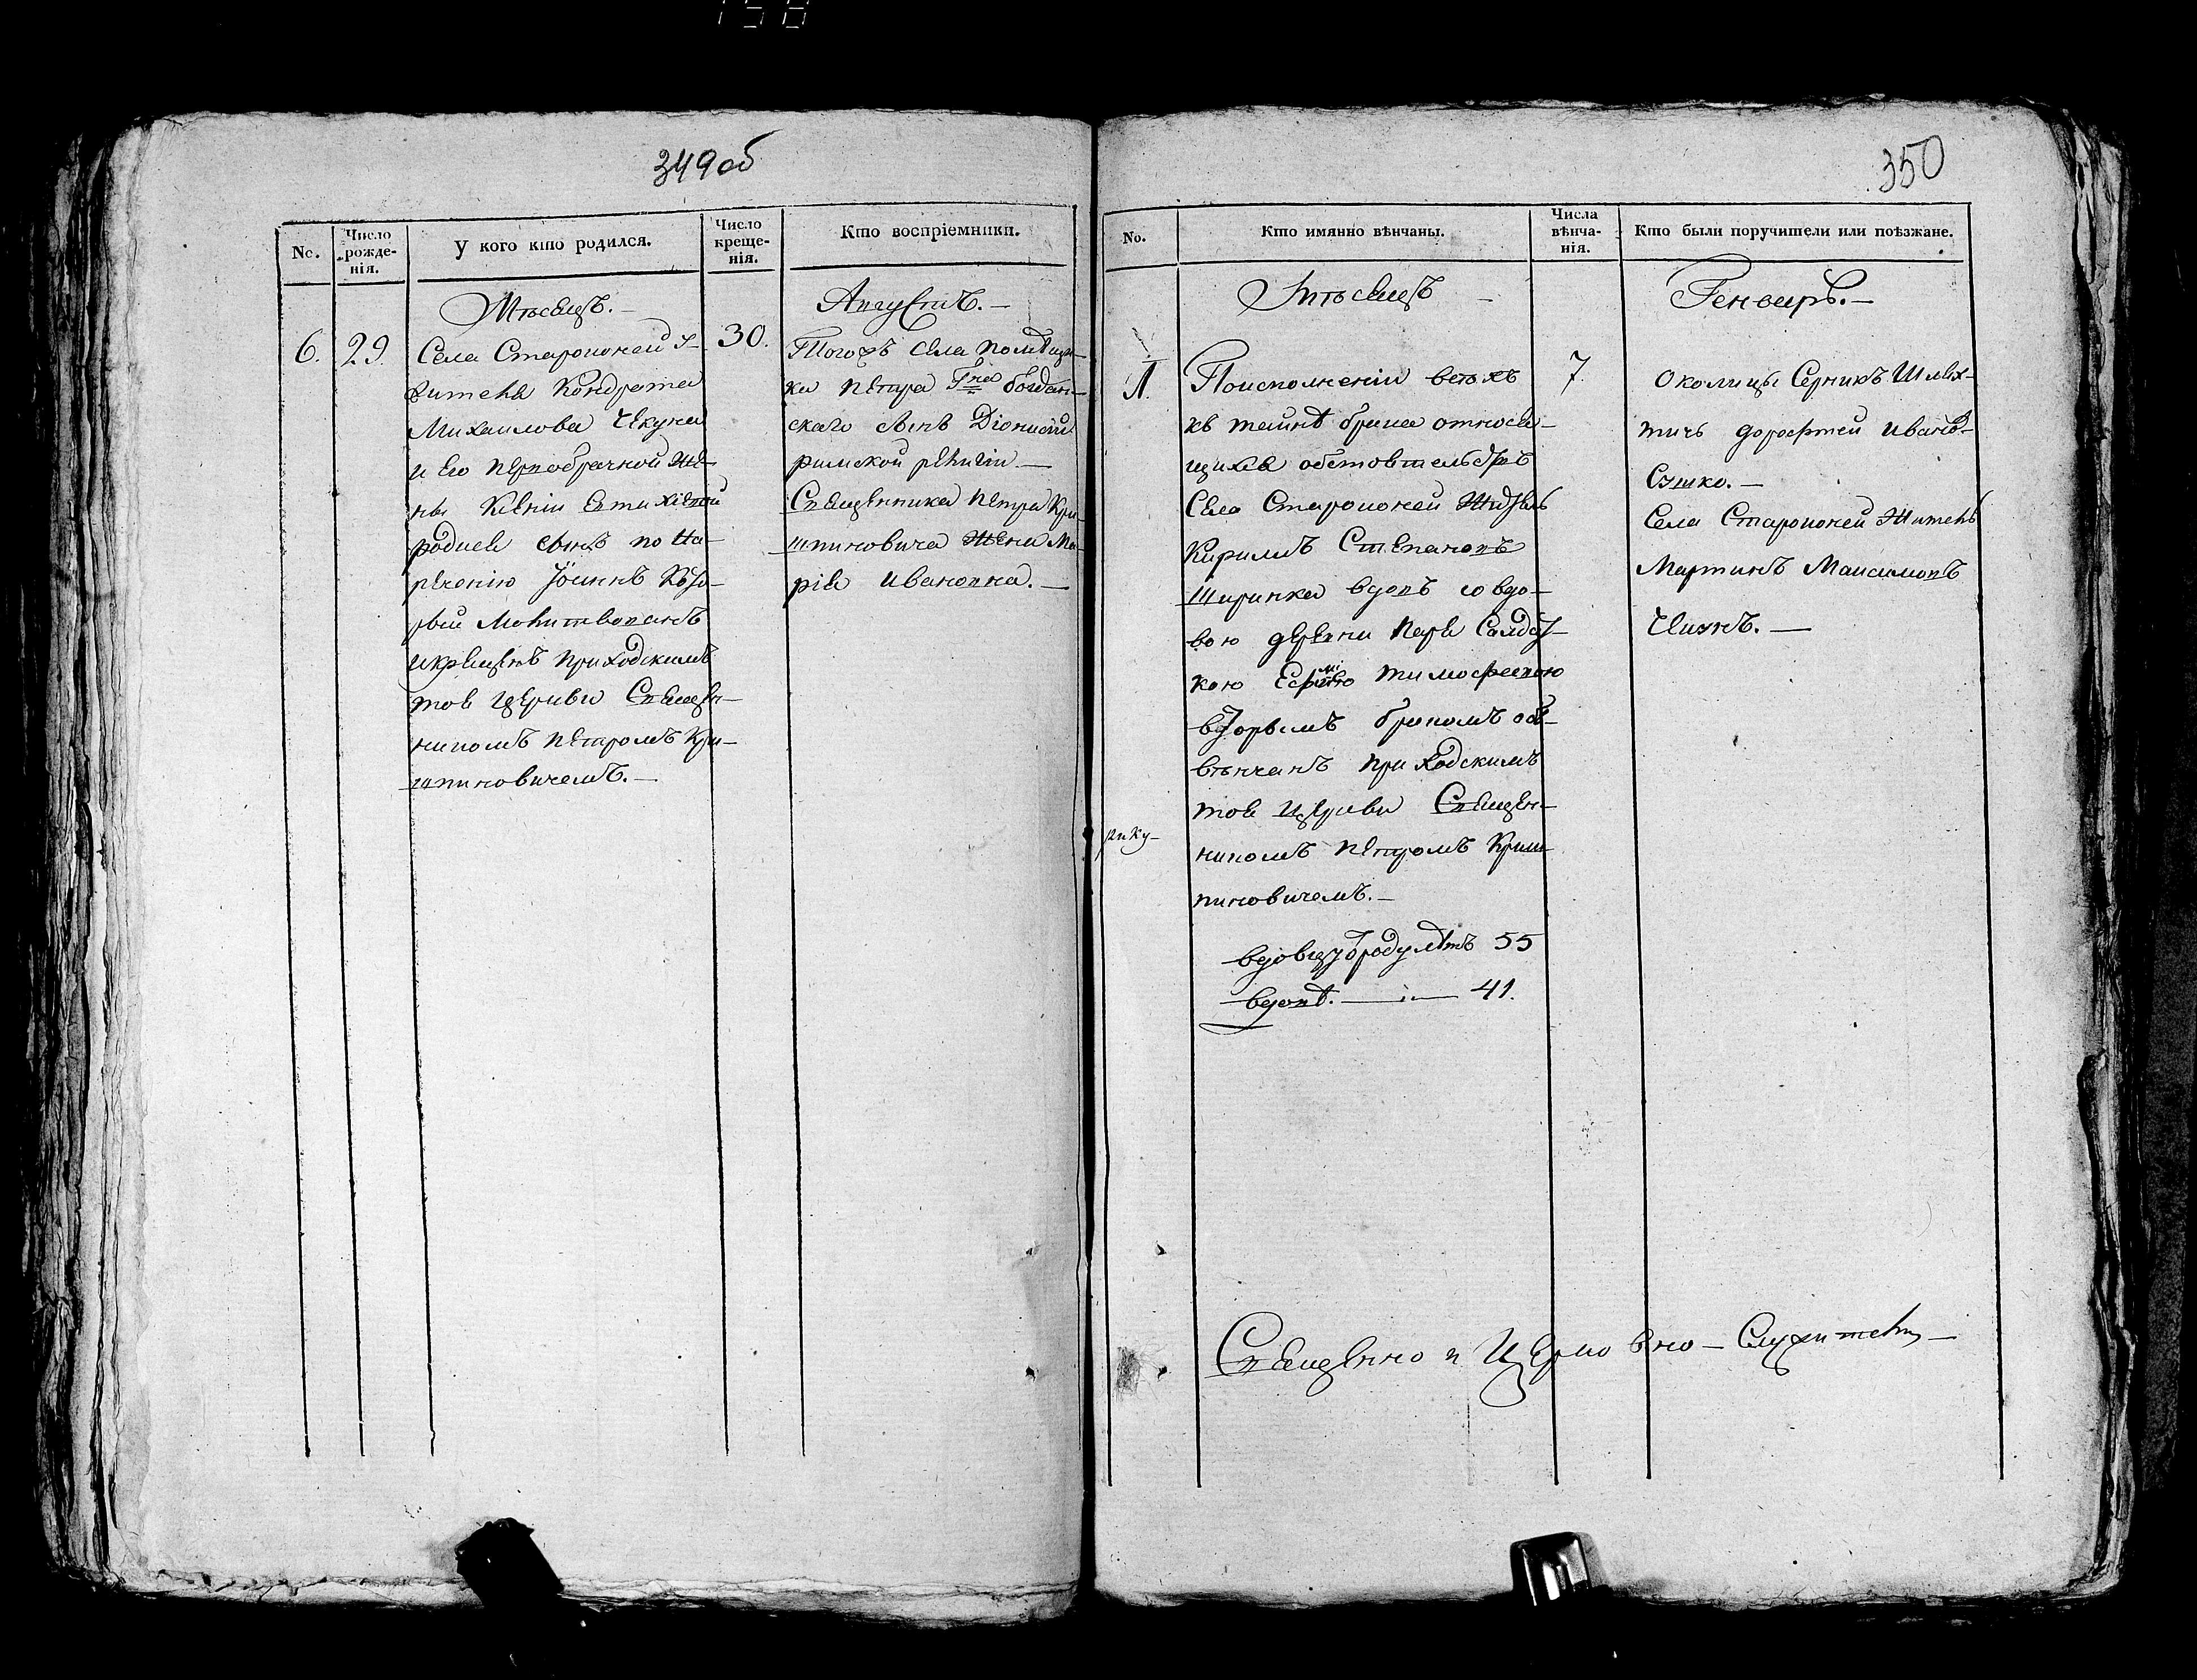 158
349 об
No.
Число рожде-
нія.
У кого кто родился.
Число
креще-
нія.
Кто воспріемники.
Мѣсяцъ. —
Августъ. —
6.
29.
30.
Села Староконей
житель Кондратъ
Михаилова Чекуна
и Его первобрачной же-
ны Ксеніи Евтихіевой
родися сынъ по на-
реченію Іоаннъ
рый Молитвованъ
и крещенъ приходскимъ
тоя церкви Священ-
никомъ Петромъ Кри-
шпиновичемъ. —
Тогожъ села помѣщи-
ка Петра Гна Богдан-
скаго сынъ Діонисій
римской религіи. —
Священника Петра Кри-
шпиновича жена Ма-
рія Ивановна. —
350
No.
Кто имянно вѣнчаны.
Числа
вѣнча-
нія.
Кто были поручители или поѣзжане.
Мѣсяцъ —
Генварь. —
1.
7.
По исполненіи всѣхъ
къ тайнѣ брака относя-
щихся обстоятельствъ
Села Староконей житель
Кирилъ Степановъ
Ширинка вдовъ со вдо-
вою деревни Паре Салдат-
кою Тимофеевою
вторымъ бракомъ об-
вѣнчанъ приходскимъ
тоя церкви Священ-
никомъ Петромъ Криш-
пиновичемъ. —
вдовцу отроду лѣтъ 55
вдовѣ. — — 41.
Околицы Серникъ Шлях-
тичъ Дорофтей Иванов-
Сушко. —
Села Староконей житель
Мартинъ Максимовъ
Чикунъ. —
Священно и Церковно-Служители —